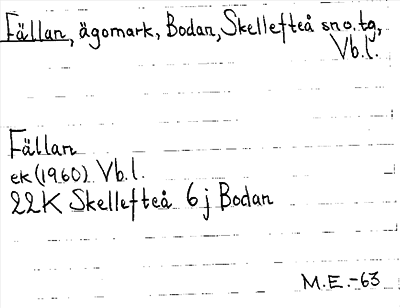 Fällan, ägomark, Bodan, Skellefteå sno.tg,
Vb.l.
Fällan
ek (1960) Vb.l.
22K Skellefteå 6j Bodan
M.E.-63